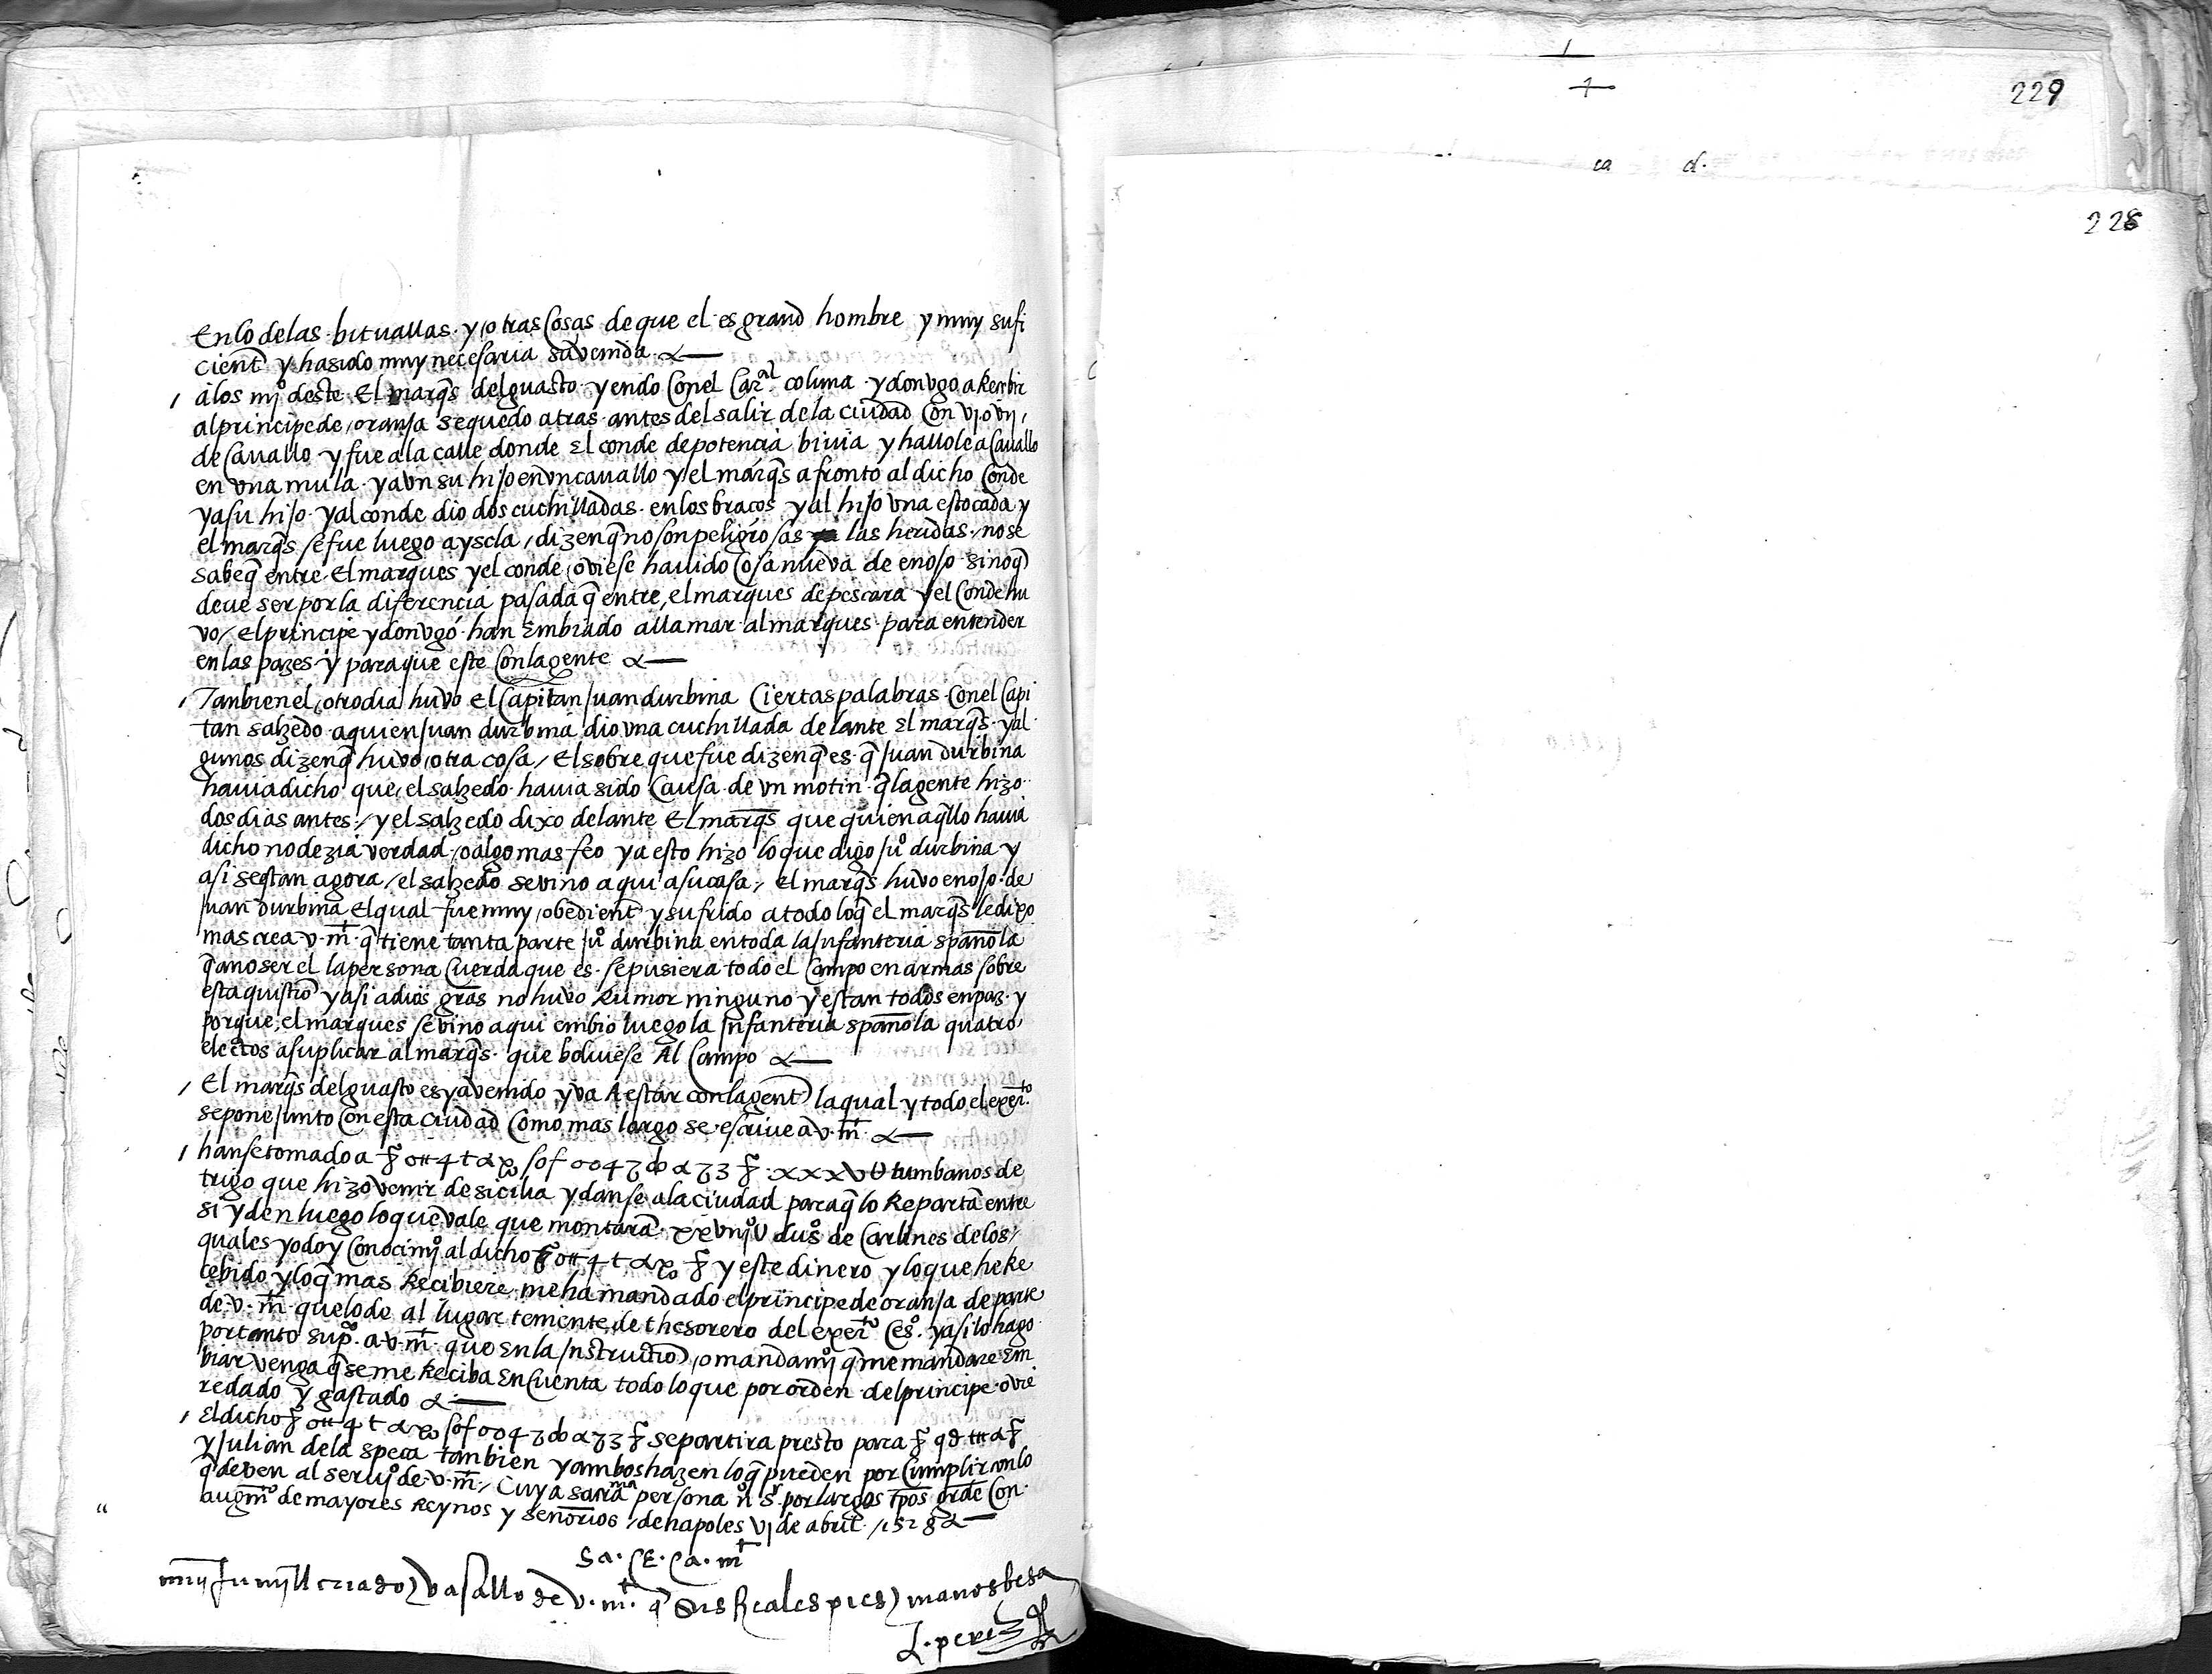 229
228
En lo de las bituallas y otras Cosas de que el es grand hombre y muy sufi
cient y ha sido muy necesaria su venida
/ a los iij deste El marqs del guasto yendo Con el Carnal coluna y don vgo a Rescebir
al principe de oranja se quedo atras antes del salir de la ciudad Con vj o vij
de Cavallo y fue a la calle donde El conde de potencia bivia y hallole a Cavallo
en vna mula y a vn su hijo en vn cavallo y el marqs afronto al dicho Conde
y a su hijo y al conde dio dos cuchilladas en los bracos y al hijo vna estocada y
el marqs se fue luego a yscla / dizen q no son peligrosas las heridas / no se
sabe q entre El marques y el conde oviese havido Cosa nueva de enojo sino q
deve ser por la diferencia pasada q entre el marques de pescara y el Conde hu
vo / el principe y don vgo han Embiado a llamar al marques para entender
en las pazes y para que este Con la gente
/ Tanbien el otro dia huvo El Capitan Juan durbina Ciertas palabras Con el Capi
tan salzedo a quien Juan durbina dio vna cuchillada delante El marqs y al
gunos dizen q huvo otra cosa / El sobre que fue dizen q es q Juan durbina
havia dicho que el salzedo havia sido Causa de vn motin q la gente hizo
dos dias antes / y el salzedo dixo delante El marqs que quien aqllo havia
dicho no dezia verdad o algo mas feo y a esto hizo lo que digo Juo durbina y
asi sestan agora / el salzedo se vino aqui a su casa / el marqs huvo enojo de
Juan durbina El qual fue muy obedient y sufrido a todo lo q el marqs le dixo
mas crea v. mt q tiene tanta parte Juo durbina en toda la Infanteria spañola
q a no ser el la persona Cuerda que es se pusiera todo el Campo en armas sobre
esta quistio y asi a dios gras no huvo Rumor ninguno y estan todos en paz y
porque el marques se vino aqui embio luego la Infanteria spañola quatro
electos a suplicar al marqs que bolviese Al Campo
/ El marqs del guasto es ya venido y va A estar con la gent la qual y todo el exerto
se pone Junto Con esta ciudad Como mas largo se escrive a v. mt
/ hanse tomado a xxxv U tumbanos de
trigo que hizo venir de sicilia y danse a la ciudad para q lo Reparta entre
si y den luego lo que vale que montara xxviij U dus de Carlines de los
quales yo doy Conocimio al dicho y este dinero y lo que he Re
cebido y lo q mas Recibiere me ha mandado el principe de oranja de parte
de v. mt que lo de al lugar teniente de thesorero del exerto Ceso. y asi lo hago
por tanto supco. a v. mt que En la Instructio o mandamio q me mandare Em
biar venga q se me Reciba En Cuenta todo lo que por orden del principe ovie
re dado y gastado
/ El dicho se partira presto para
y Julian dela speca tanbien y ambos hazen lo q pueden por Cumplir con lo
q deven al servio de v. mt / Cuya sacrama persona nro sr por largos tpos grde Con
augmto de mayores Reynos y señorios / de napoles vj de abril / 1528
Sa. CE. Ca. mt
muy humill criado y vasallo de v. mt. q Sus Reales pies y manos besa
L. perez